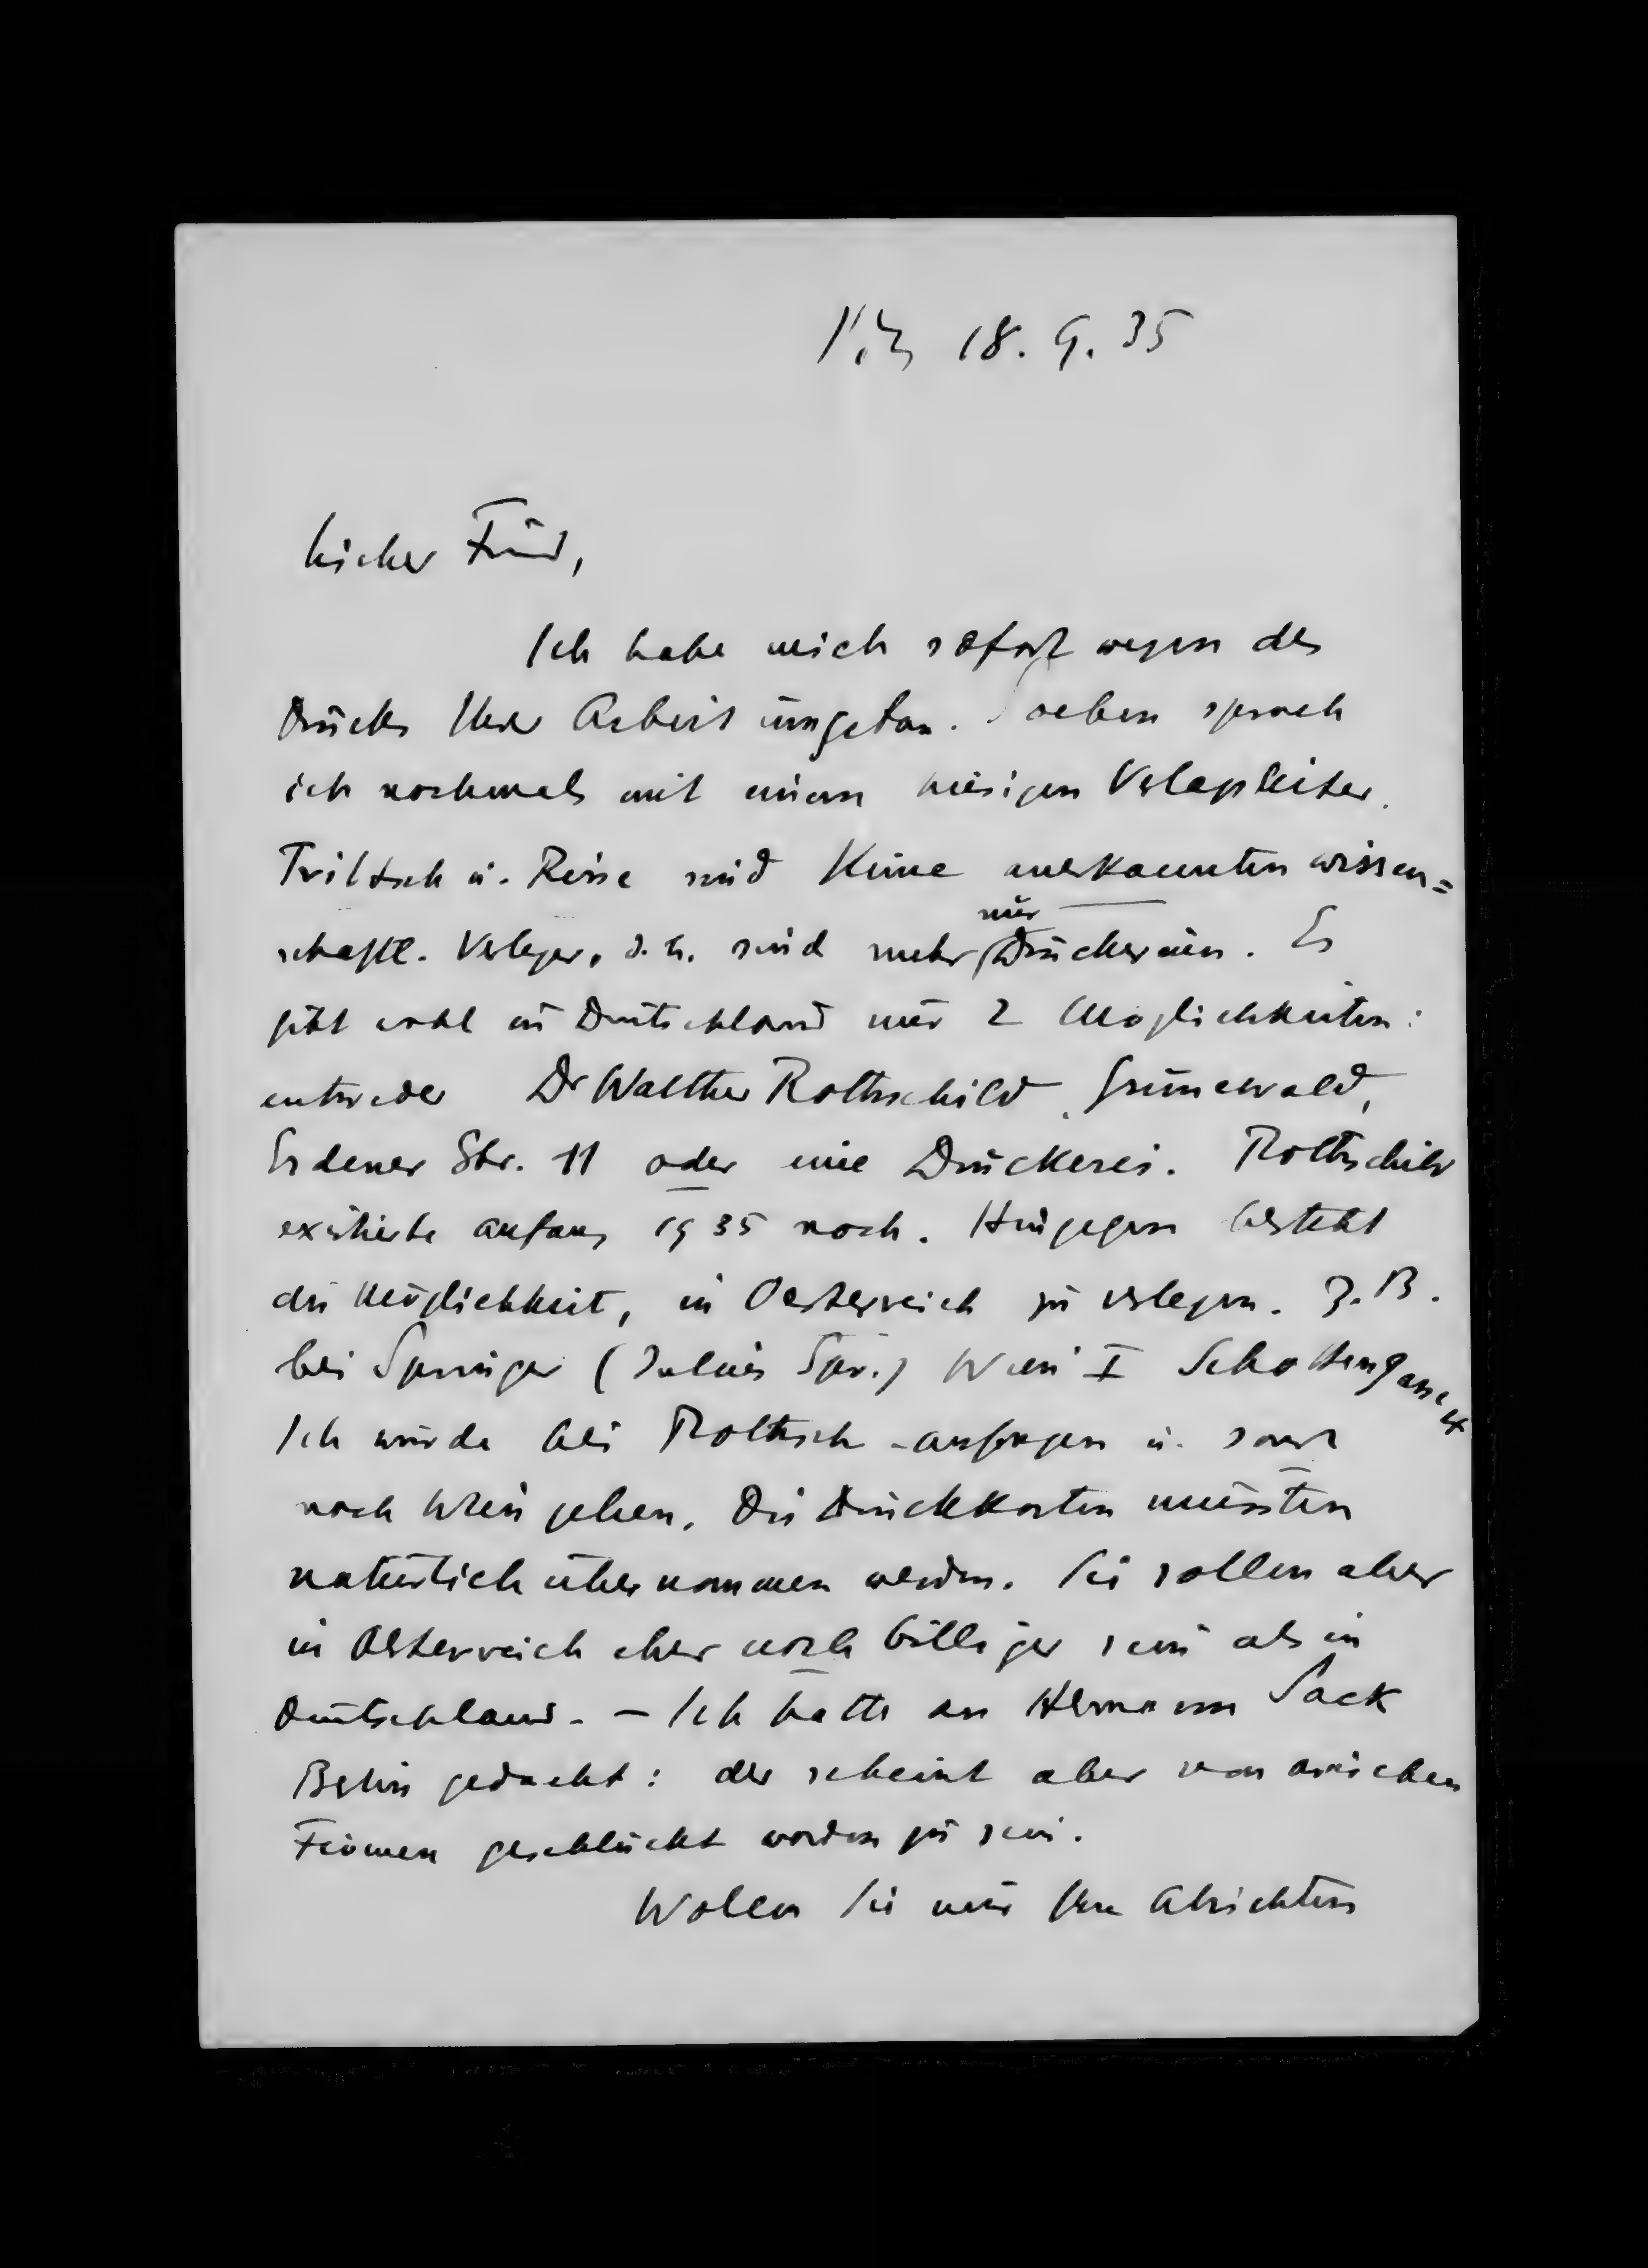 18. 9. 35
Lieber Freund,
Ich habe mich sofort wegen des
Drucks Ihrer Arbeit umgetan. Soeben sprach
ich nochmals mit einem hiesigen Verlagsleiter.
Triltsch u. Reise sind keine anerkannten wissen=
schaftl. Verleger, d. h. sind mehr nur Druckereien. Es
gibt wohl in Deutschland nur 2 Möglichkeiten:
entweder Dr Walther Rothschild, Grunewald,
Erdener Str. 11 oder eine Druckerei. Rothschild
existierte anfang 1935 noch. Hingegen besteht
die Möglichkeit, in Oesterreich zu verlegen. Z. B.
bei Springer (Julius Spr.) Wien I Schottengasse 4
Ich würde bei Rothsch. anfragen u. sonst
nach Wien gehen. Die Druckkosten müssten
natürlich übernommen werden. Sie sollen aber
in Oesterreich eher noch billiger sein als in
Deutschland. - Ich hatte an Hermann Sack
Berlin gedacht: der scheint aber von arischen
Firmen geschluckt worden zu sein.
Wollen Sie mir Ihre Absichten